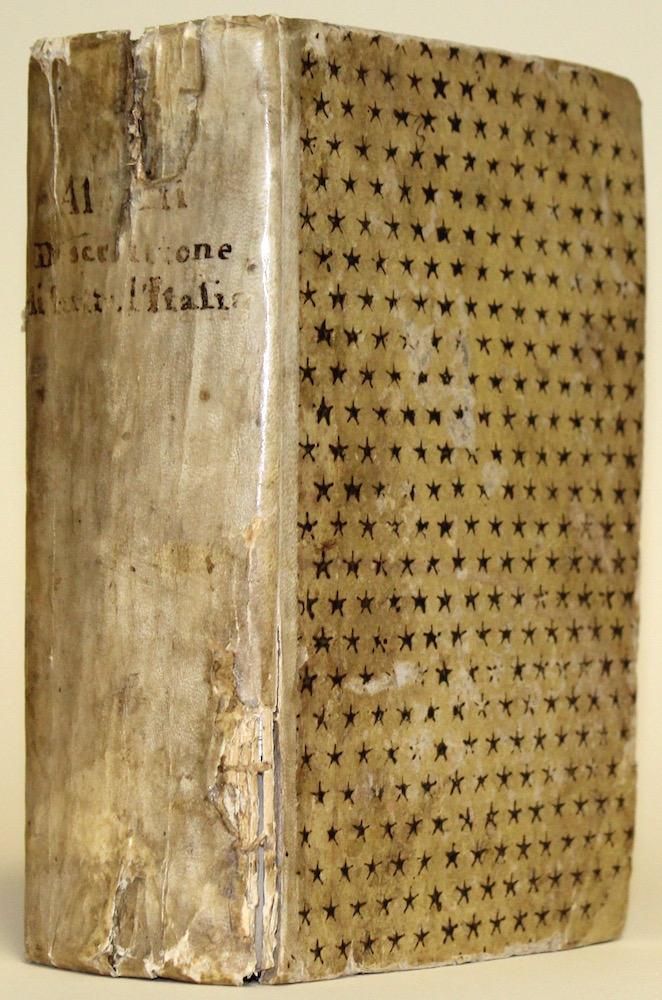 Descrittione
di tutta l'Italia